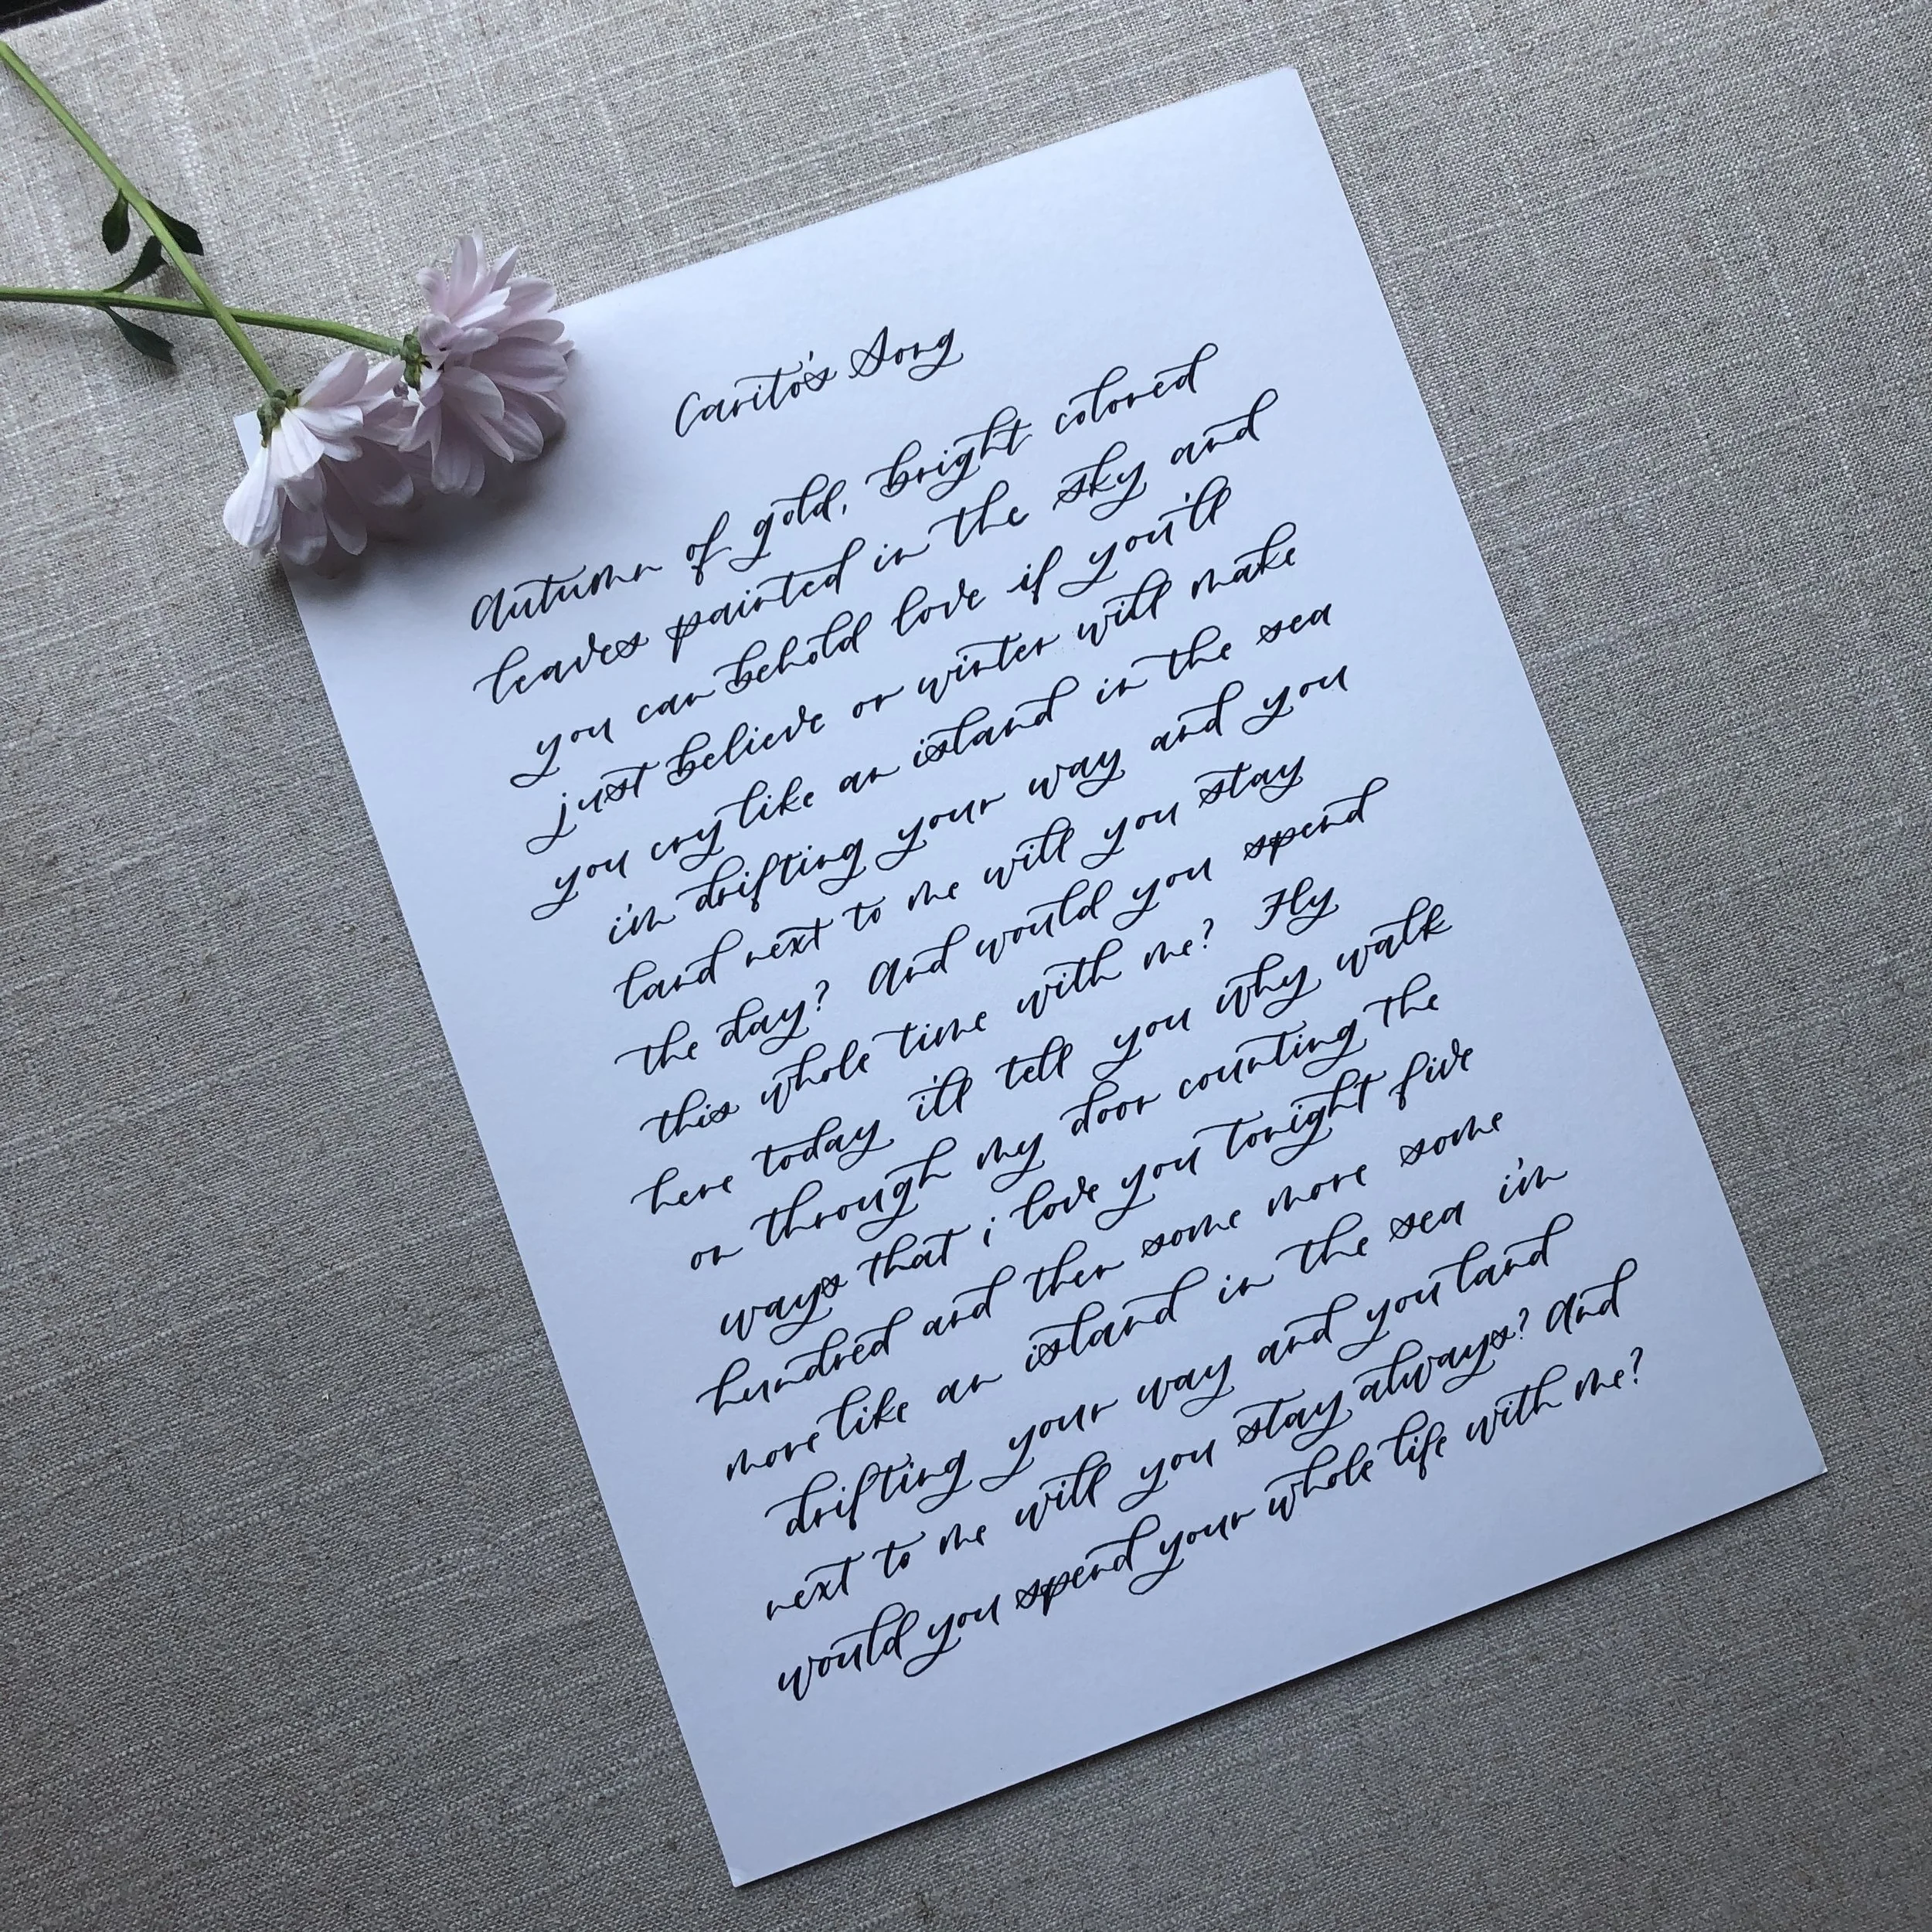 Carito's Song
Autumn of gold, bright colored
leaves painted in the sky and
you can behold love if you'll
just believe or winter will make
you cry like an island in the sea
i'm drifting your way and you
land next to me will you stay
the day? And would you spend
this whole time with me? Fly
here today i'll tell you why walk
on through my door counting the
ways that i love you tonight five
hundred and then some more some
more like an island in the sea i'm
drifting your way and you land
next to me will you stay always? And
would you spend your whole life with me?